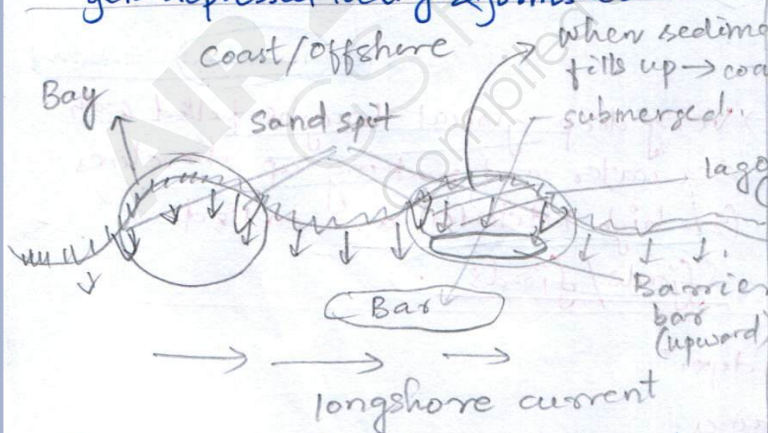 coast/offshore
when sedime
fills up → coa
submerged..
Bay
sand spit
lago
Barrier
bar
(upward)
Bar
longshore current
AIR
compiled